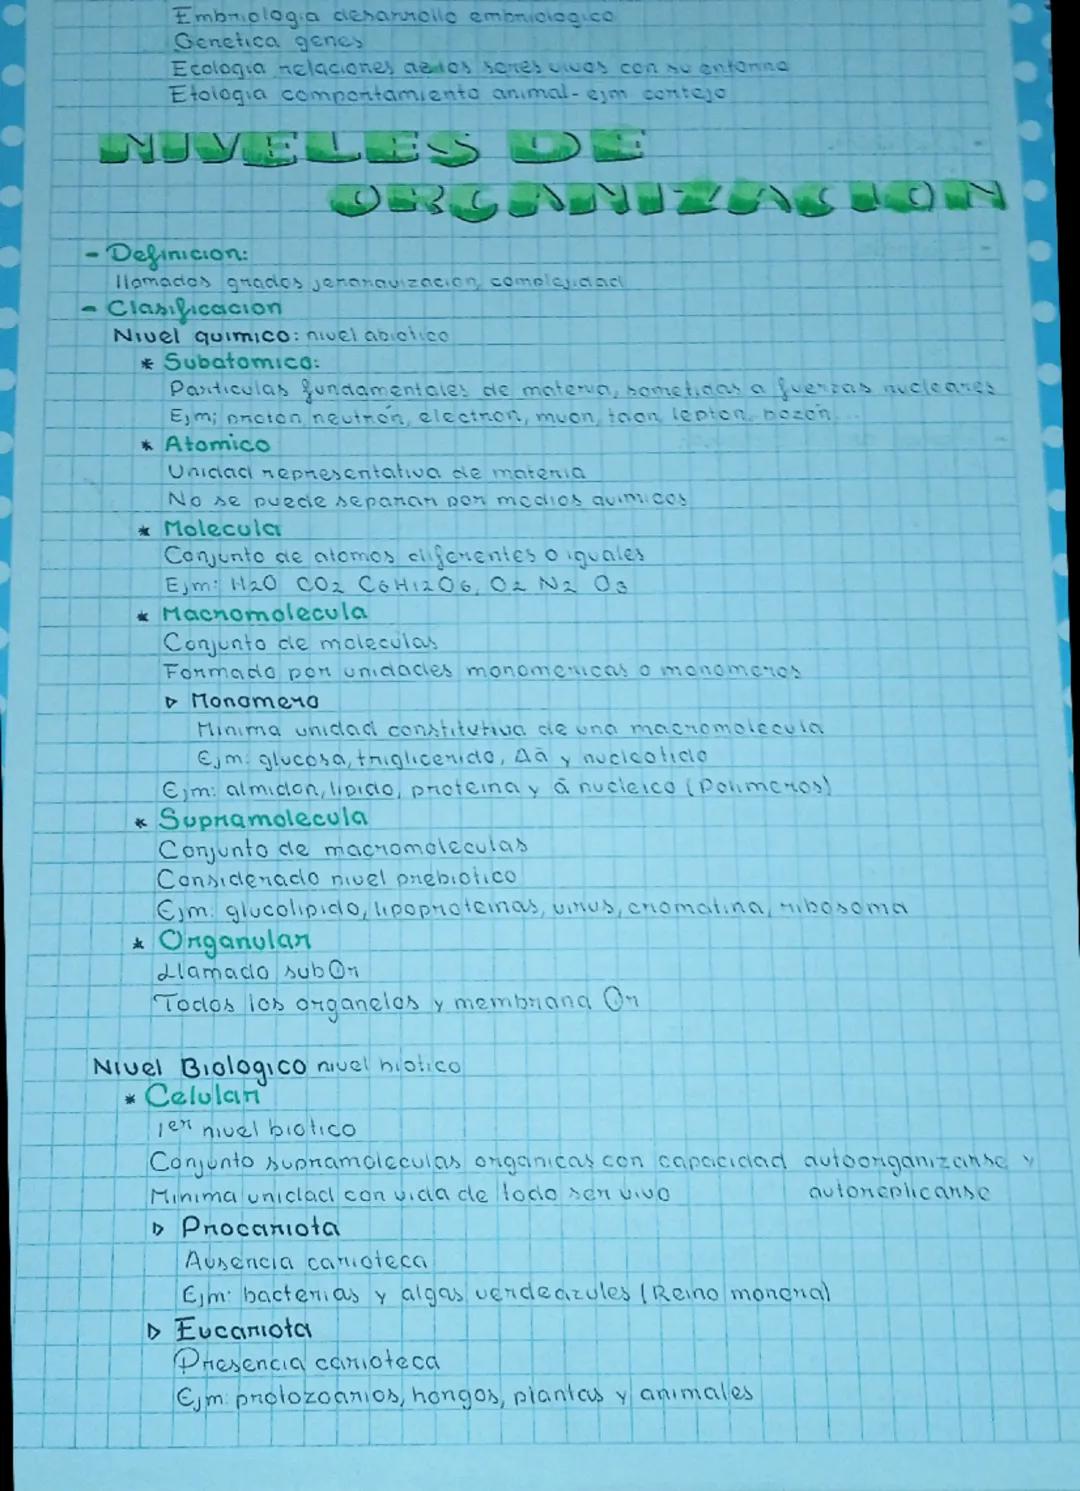 Embriologia desarrollo embriologico
Genetica genes
Ecologia relaciones de los seres vivos con su entorno
Etologia comportamiento animal- ejm cortejo
NIVELES DE
ORGANIZACION
- Definicion:
llamados grados jerarquizacion complejidad
- Clasificacion
Nivel quimico: nivel abiotico
* Subatomico:
Particulas fundamentales de materia, sometidas a fuerzas nucleares
Ejm; proton, neutrón, electron, muon, taon, lepton, bozón...
* Atomico
Unidad representativa de materia
No se puede separar por medios quimicos
* Molecula
Conjunto de atomos diferentes o iguales
Ejm: H2O CO2 C6H12O6, O2 N2 O3
* Macromolecula
Conjunto de moleculas
Formado por unidades monomericas o monomeros
▷ Monomero
Minima unidad constitutiva de una macromolecula
Ejm: glucosa, triglicerido, Aã y nucleotido
Ejm: almidon, lipido, proteina y ã nucleico (Polimeros)
* Supramolecula
Conjunto de macromoleculas
Considerado nivel prebiotico
Ejm: glucolipido, lipoproteinas, virus, cromatina, ribosoma
* Organular
Llamado sub
Todos los organelos y membrana
Nivel Biologico nivel biotico
* Celular
1er nivel biotico
Conjunto supramoleculas organicas con capacidad autoorganizarse y
autoreplicarse
Minima unidad con vida de todo ser vivo
▷ Procariota
Ausencia carioteca
Ejm: bacterias y algas verdeazules (Reino monera)
▷ Eucariota
Presencia carioteca
Ejm: protozoarios, hongos, plantas y animales